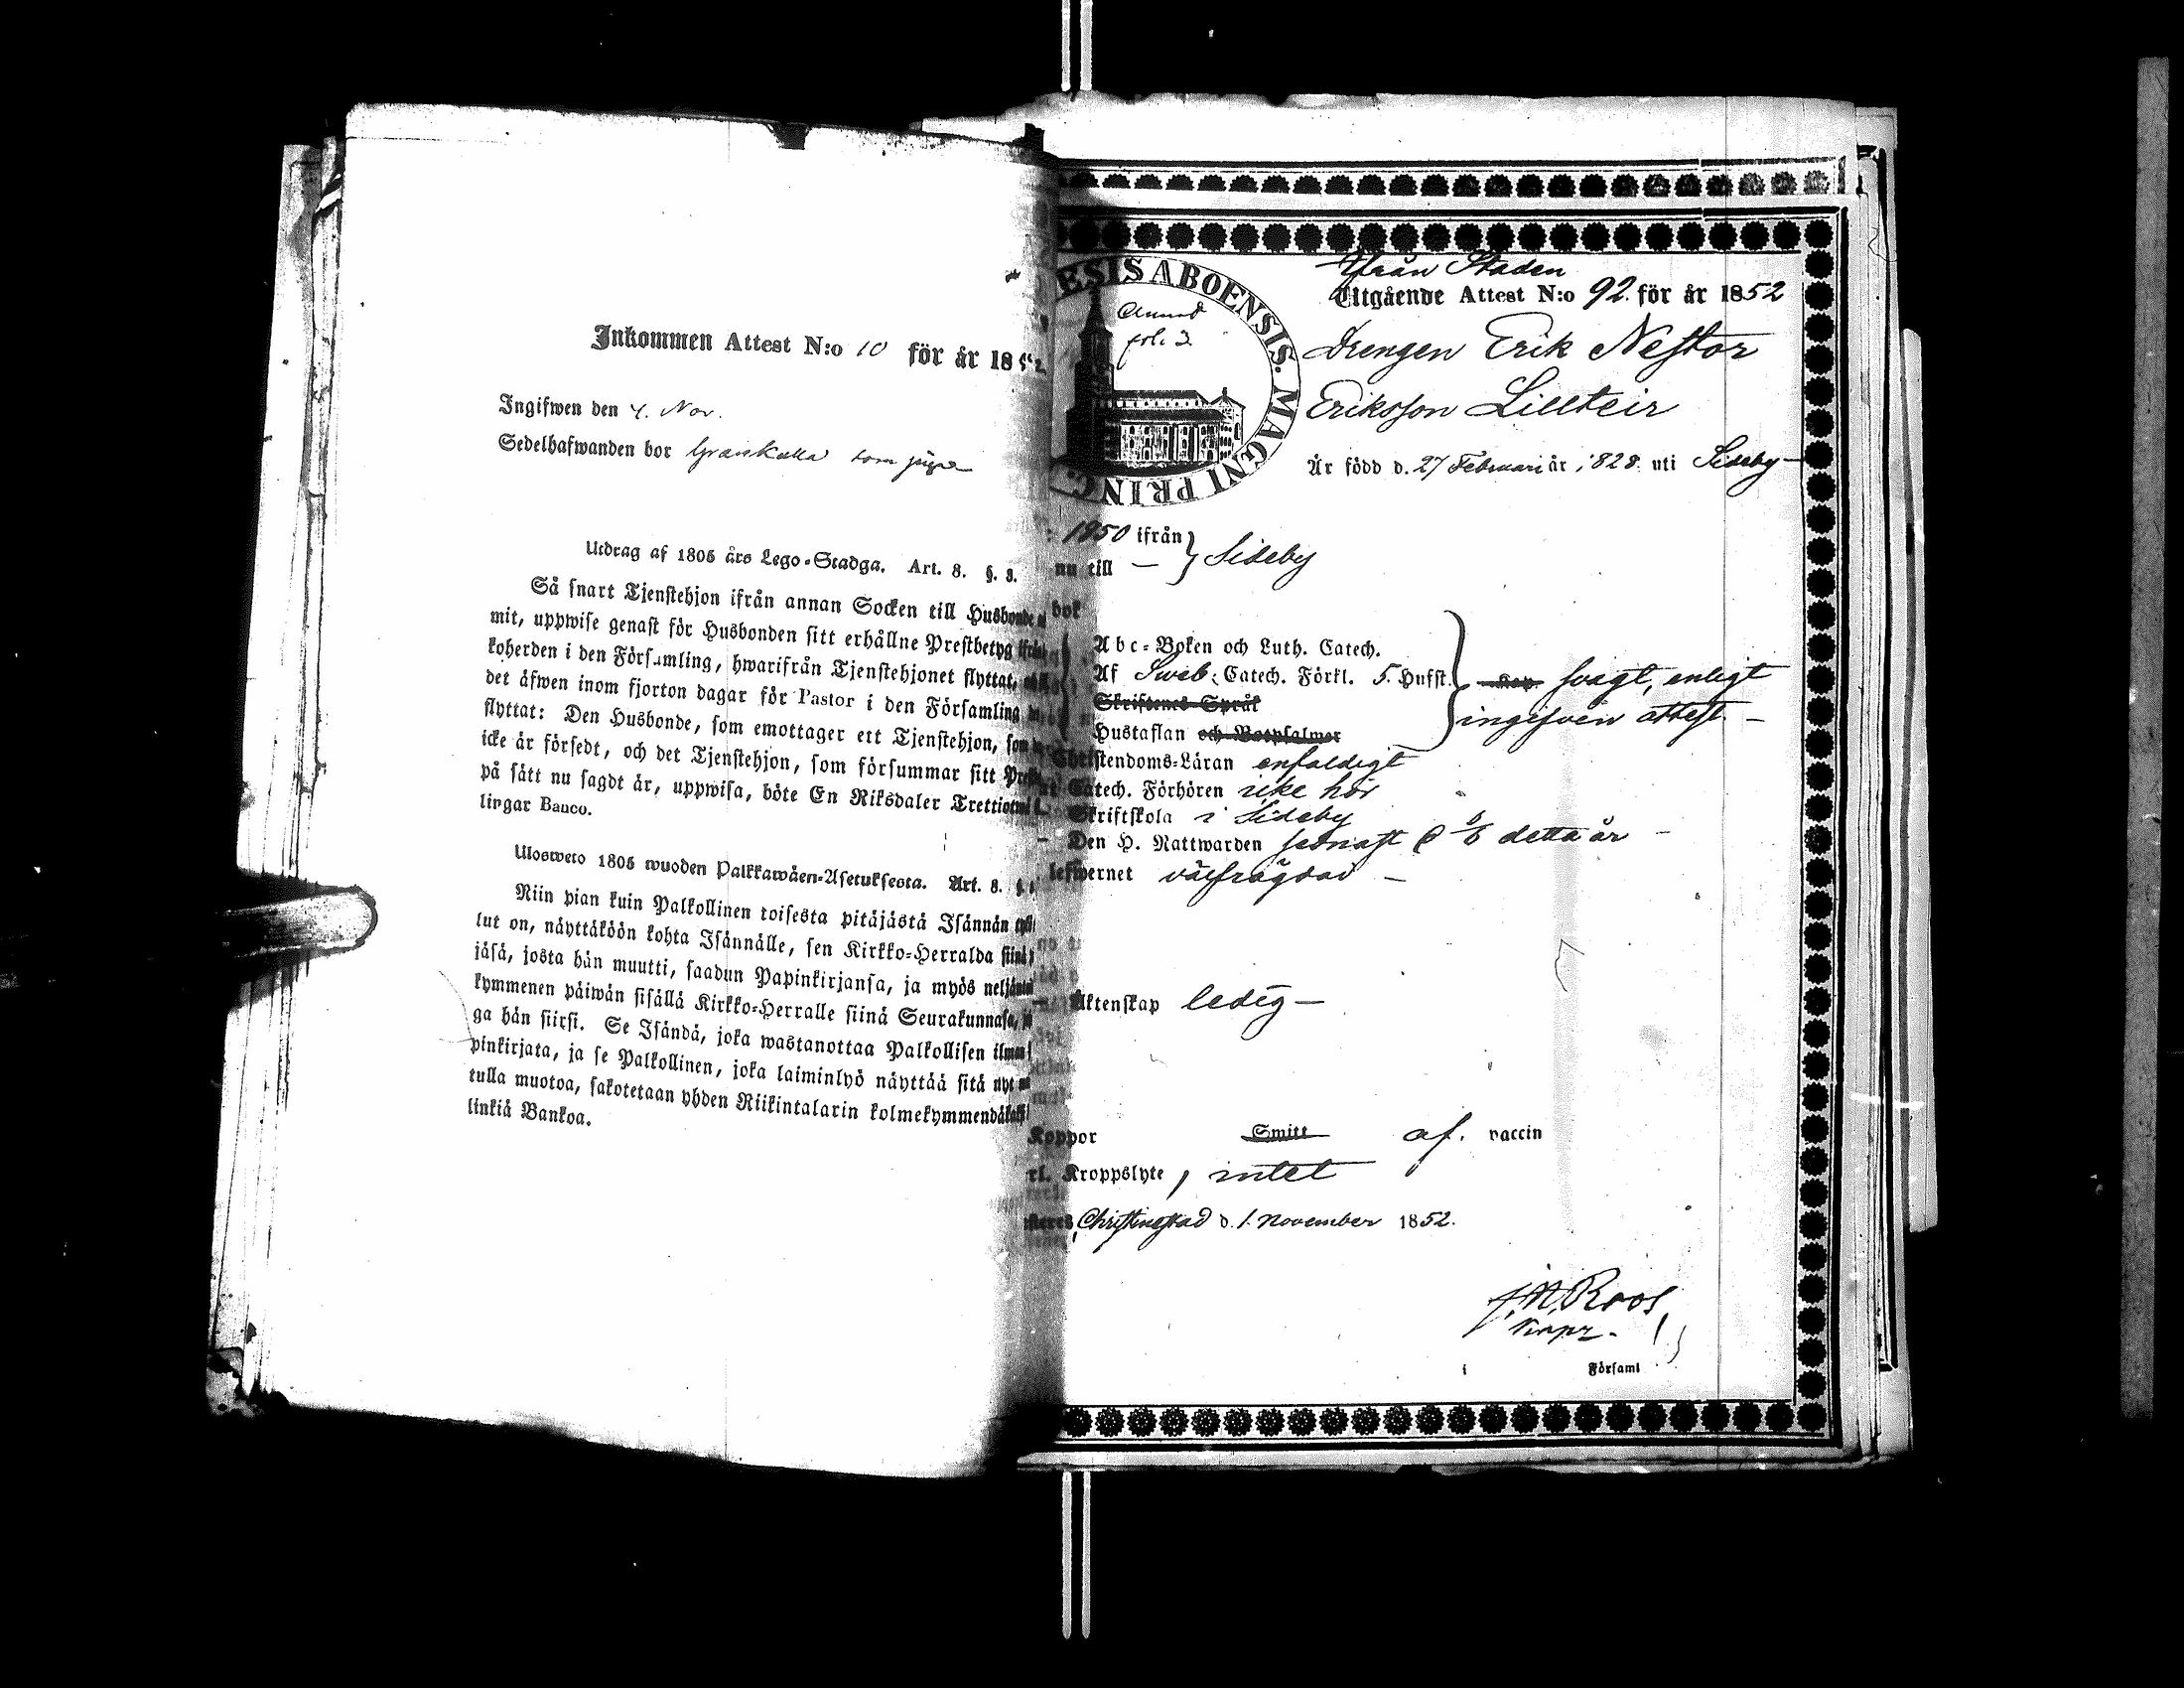 Inkommen Attest N:o 10 för år 1852.
Ingifwen den 4. Nov.
Sedelhafwanden bor som
Utdrag af 1805 års Lego-Stadga. Art. 8. §. 8.
Så snart Tjenstehjon ifrån annan Socken till Husbonde
mit, uppwise genast för Husbonden sitt erhållne Prestbetyg
koherden i den Församling, hwarifrån Tjenstehjonet flyttat,
det äfwen inom fjorton dagar för Pastor i den Församling
flyttat: Den Husbonde, som emottager ett Tjenstehjon, som
icke är försedt, och det Tjenstehjon, som försummar sitt
på sätt nu sagdt är, uppwisa, böte En Riksdaler
lingar Banco.
Uloswetö 1805 wuoden Palkkawäen-Asetuksesta. Art. 8.
Niin pian kuin Palkollinen toisesta pitäjästä Isännän
lut on, näyttäköön kohta Isännälle, sen Kirkko-Herralda
jäsä, josta hän muutti, saadun Papinkirjansa, ja myös
kymmenen päiwän sisällä Kirkko-Herralle siinä Seurakunnasa,
ga hän siirsi. Se Isändä, joka wastanottaa Palkollisen
pinkirjata, ja se Palkollinen, joka laiminlyö näyttää sitä nyt
tulla muotoa, sakotetaan yhden Riikintalarin
linkiä Bankoa.
ESIS ABOENSIS. MAGNI PRINC.
fol. 3.
Ifrån Staden
Utgående Attest N:o 92. för år 1852
Drengen Erik Nestor
Eriksson Lillteir
Är född d. 27 Februari år 1828. uti Sideby
1850 ifrån
nu till — } Sideby
bok
Abc-Boken och Luth. Catech.
Af Sweb. Catech. Förkl. 5. Hufst. svagt, enligt
Skriftenes Språk ingifven attest. —
Hustaflan och Botpsalmer
Christendoms-Läran enfaldigt
Catech. Förhören icke här
Skriftskola i Sideby
Den H. Nattwarden sednast detta år —
lefwernet välfrägdad —
Äktenskap ledig —
Koppor Smitt af. vaccin
rl. Kroppslyte, intet
Christinestad d. 1. November 1852.
J. N. Roos,
i Församl